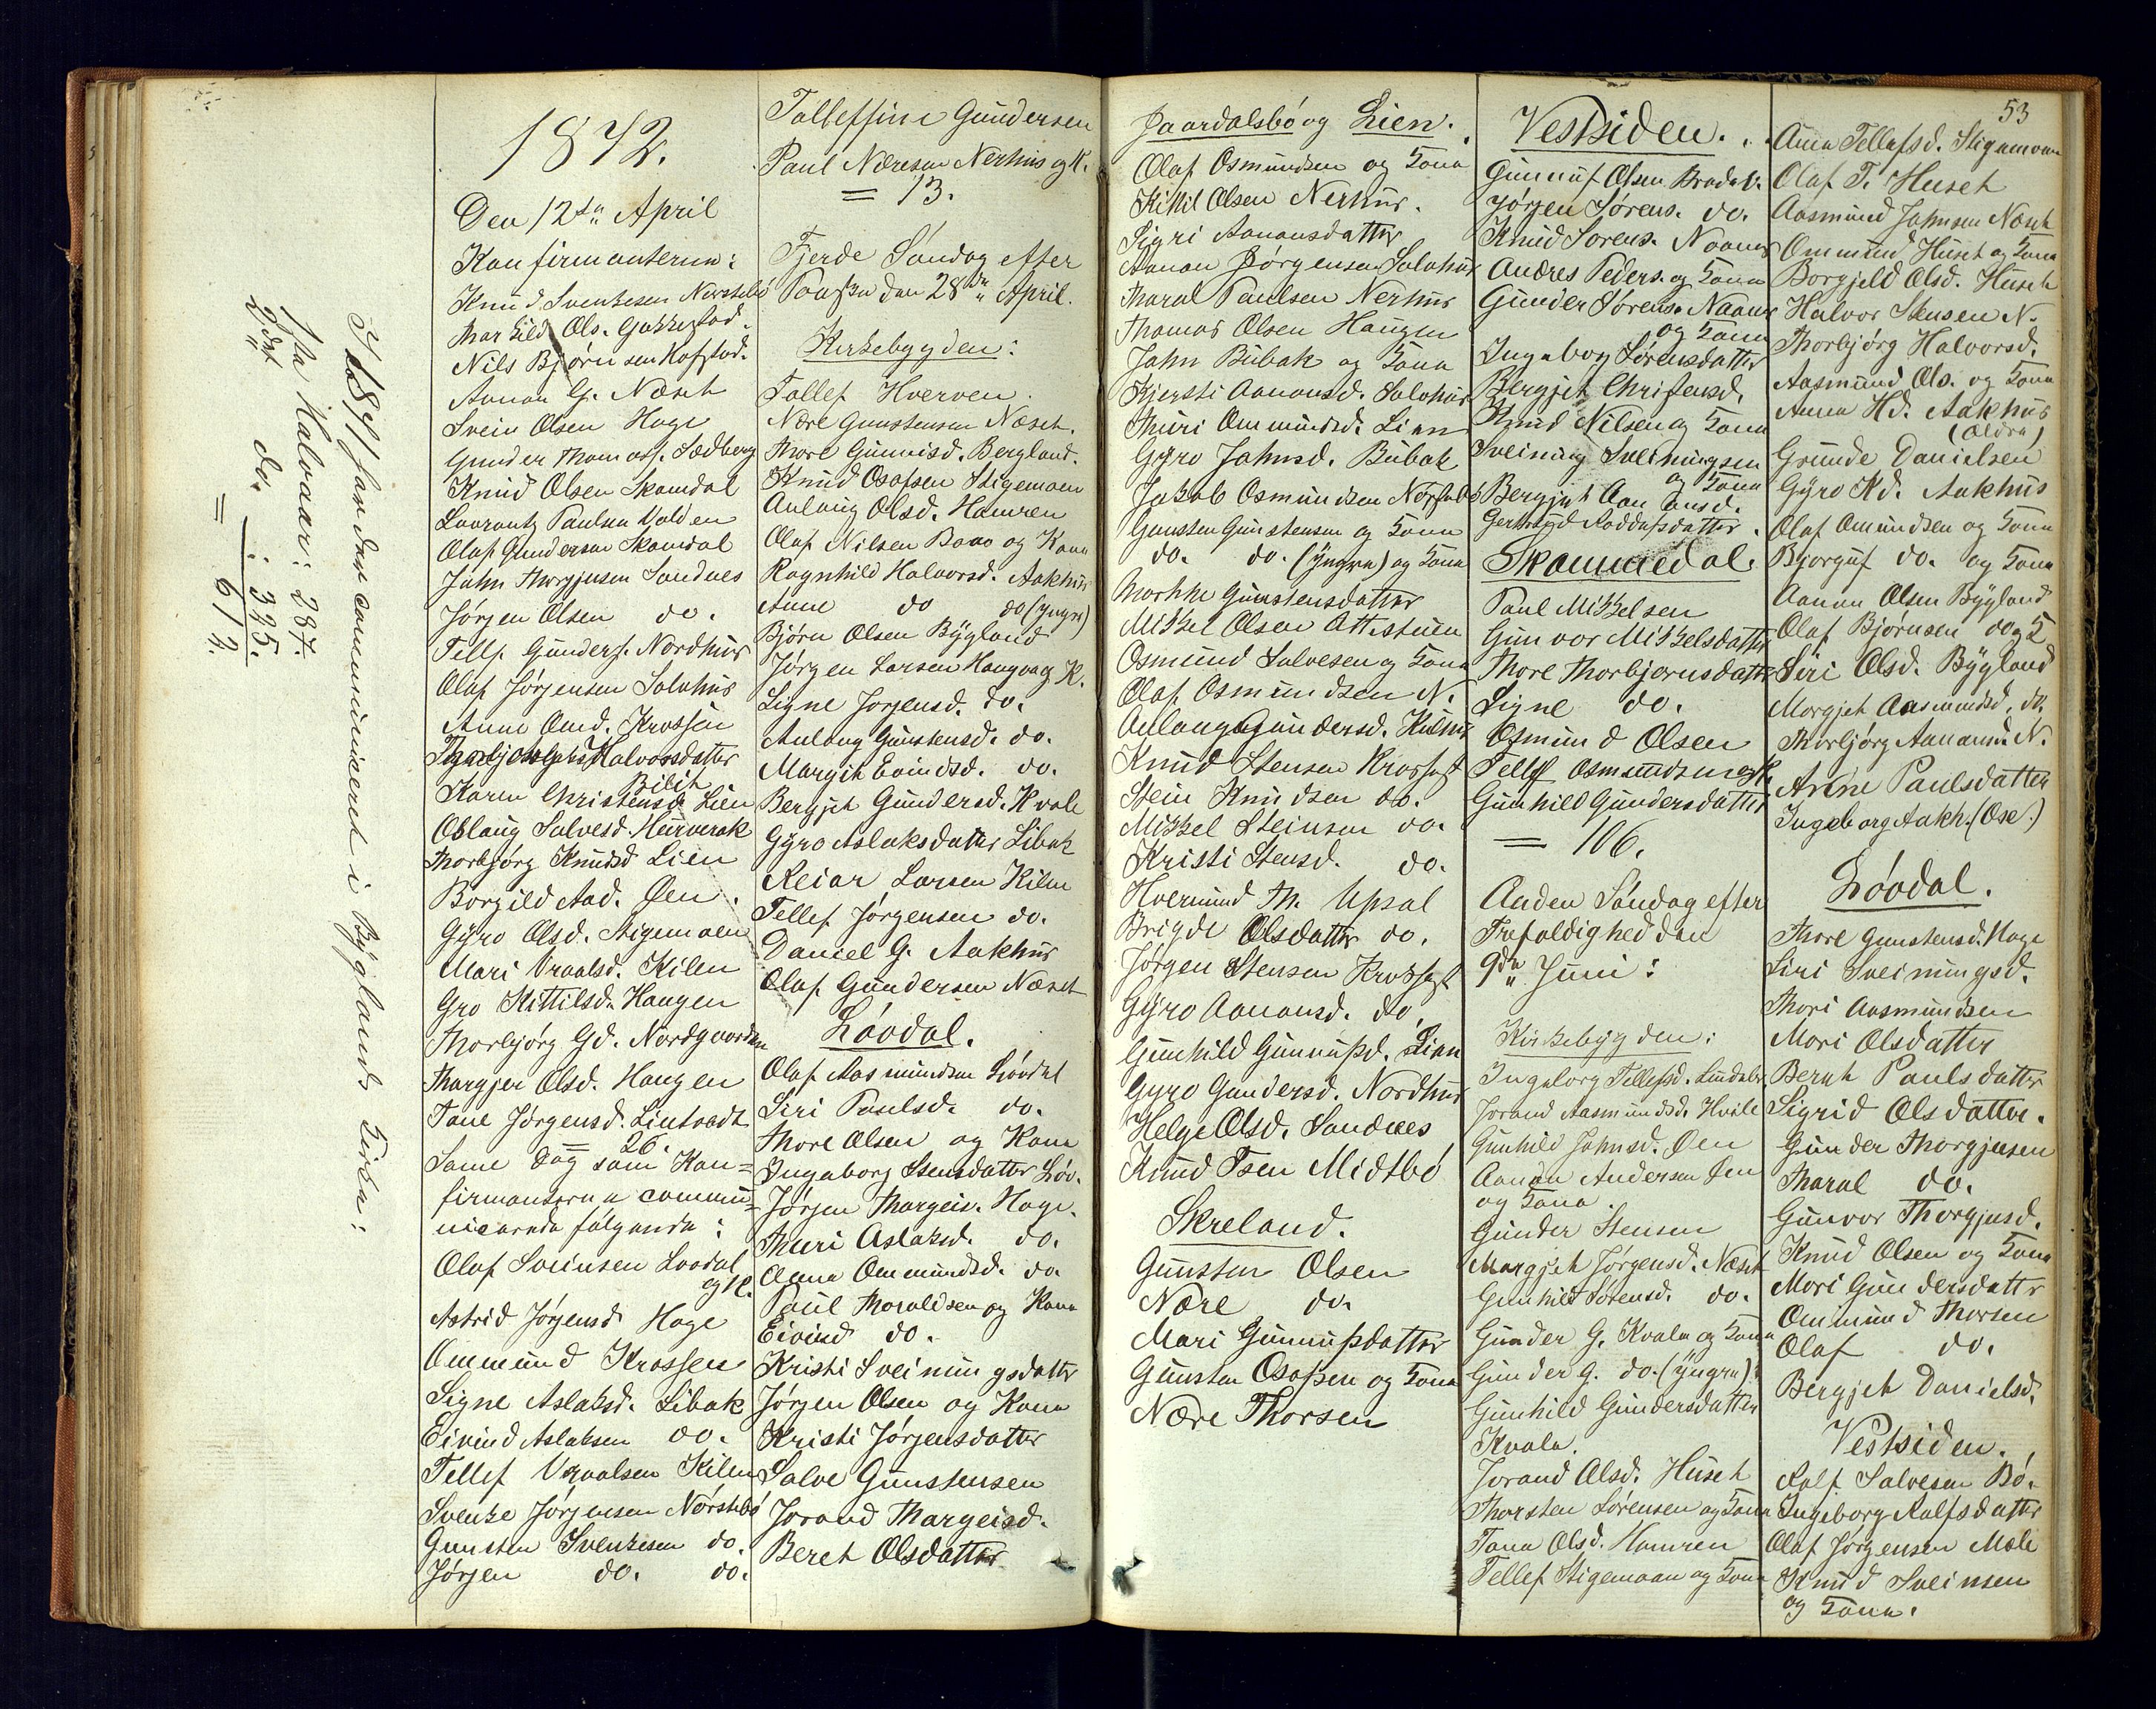 I 1871 har det communiceret i Byglands Kirke:
1ste Halvaar: 287.
2det do. : 325.
= 612.
1872.
Den 12te April
Konfirmanterne:
Knud Svenkesen Nørstebö
Thorkild Ols. Gakkestad.
Nils Bjørnsen Hofstad.
Aanon G. Næset
Svein Olsen Hage
Gunder Thomass. Sædberg
Knud Olsen Skamdal
Laurantz Paulsen Valden
Olaf Gundersen Skamdal
John Thorgjusen Sandnes
Jørgen Olsen do.
Tellf. Gunders. Nordhus
Olaf Jørgensen Solohus
Anne Omd. Krossen
Halvorsdatter
Bilit
Karen Christensd. Lien
Oslaug Salvesd. Hurverak
Thorbjørg Knudsd Lien
Borgild Aad. Øen.
Gyro Olsd. Stigemoen
Mari Vraalsd. Kilen
Gro Kittilsd. Haugen
Thorbjørg Gd. Nordgaarden
Thorgjer Olsd. Haugen
Tone Jørgensd. Lintvedt
= 26.
Same Dag som Kon=
firmanterne commu=
nicerede følgende:
Olaf Sveinsen Loodal
og K.
Astrid Jørgensd Hage
Ommund Krossen
Signe Aslaksd. Libak
Eivind Aslaksen do.
Tellef Vraalsen Kilen
Svenke Jørgensen Nørstebö
Gunsten Svenkesen do.
Jörgen do. do.
Tallefsine Gundersen
Paul Næresen Nerhus og K.
= 13.
Fjerde Söndag efter
Paaske den 28de April.
Kirkebygden:
Tallef Hverven.
Nære Gunstensen Næset.
Thore Gunnisd. Bergland.
Knud Osofsen Stigemoen
Aulaug Olsd. Hamren
Olaf Nilsen Baao og Kone
Ragnhild Halvorsd. Aakhus
Anne do do (yngre)
Bjørn Olsen Bygland
Jørgen Larsen Haugog K.
Signe Jorgensd. do.
Aulaug Gunstensd. do.
Margit Evindsd. do.
Bergjet Gundersd. Kvale
Gyro Aslaksdatter Libak
Reiar Larsen Kilen
Tellef Jørgensen do.
Daniel G. Aakhus
Olaf Gundersen Næset
Lóvdal.
Olaf Aasmundsen Lövdal
Siri Paulsd. do.
Thore Olsen og Kone
Ingeborg Stensdatter Löv.
Jørgen Thorgeis. Hage.
Thuri Aslaksd. do.
Anna Ommundsd. do.
Paul Thoraldsen og Kone
Eivind do.
Kristi Sveinungsdatter
Jørgen Olsen og Kone
Kristi Jørgensdatter
Salve Gunstensen
Jorand Thorgeisd.
Beret Olsdatter
Jaardalsbó og Lien.
Olaf Osmundsen og Kone
Kittil Olsen Nerhus.
Sigri Aanonsdatter
Aanon Jørgensen Solohus
Tharal Paulsen Nerhus
Thomas Olsen Haugen
John Bubak og Kone
Kjersti Aanonsd. Solohus
Thuri Ommundsd. Lien
Gyro Johnsd. Bubak
Jakob Osmundsen Nørstebö
Gunsten Gunstensen og Kone
do. do. (yngre) og Kone
Gunstensdatter
Mikkel Olsen Attestuen
Osmund Salvesen og Kone
Olaf Osmundsen N.
Aulaug Gundersd. Hulene
Knud Stensen Krossest
Stein Knudsen do.
Mikkel Steinsen do.
Kristi Stensd. do.
Hvermund Th. Upsal
Brigde Olsdatter do.
Jørgen Stensen Krossest
Gyro Aanonsd. do.
Gunhild Gunnufsd. Lien
Gyro Gundersd. Nordhus
Helge Olsd. Sandnes
Knud Tsen Midtbö
Skreland.
Gunsten Olsen
Nære do.
Mari Gunnufsdatter
Gunsten Osofsen og Kone
Nære Thorsen
Vestsiden.
Gunnuf Olsen Bradal.
Jörgen Sørens. do.
Knud Sorens. Noanes
Andres Peders. og Kone
Gunder Sørens. Naanes
og Kone
Ingeborg Sørensdatter
Bergjet Christensd.
Knud Nilsen og Kone
Sveinung Sveinungsen
og Kone
Bergjet Aanonsd.
Gertrud Roddafsdatter.
Skammedal.
Paul Mikkelsen
Gunvor Mikkelsdatter
Thore Thorbjørnsdatter
Signe do.
Osmund Olsen
Tellef Osmundsen og K.
Gunhild Gundersdatter
= 106.
Anden Söndag efter
Trefoldighed den
9de Juni:
Kirkebygden:
Ingeborg Tellefsd. Lundeb.
Jorand Aasmundsd. Hvile
Gunhild Johnsd. Øen
Aanon Andersen Øen
og Kone.
Gunder Stensen
Margjet Jørgensd. Næset
Gunhild Sörensd. do.
Gunder G. Kvale og Kone
Gunder G. do. (yngre)
Gunhild Gundersdatter
Kvale.
Jorand Olsd. Huset
Thorsten Sørensen og Kone
Tone Olsd. Hamren
Tellef Stigemoen og Kone
53
Anna Tellefsd. Stigemoen
Olaf T. Huset
Aasmund Johnsen Næset
Ommund Huset og Kone
Borgjeld Olsd. Huset
Halvor Stensen N.
Thorbjørg Halvorsd.
Aasmund Ols. og Kone
Anna Hd. Aakhus
(Ældre)
Grunde Danielsen
Gyro Kd. Aakhus
Olaf Omundsen og Kone
Bjorguf do. og Kone
Aanon Olsen Bygland
Olaf Bjørnsen do og K
Siri Olsd. Bygland
Morgjet Aasmundsd. do.
Thorbjørg Aanonsd. N.
Anne Paulsdatter
Ingeborg Aakh. (Ose.)
Lóvdal.
Thore Gunstensd. Hage
Siri Sveinungsd.
Thori Aasmundsen
Mori Olsdatter
Beruh Paulsdatter
Sigrid Olsdatter.
Gunder Thorgjusen
Tharal do.
Gunvor Thorgjusd.
Knud Olsen og Kone
Mori Gundersdatter
Ommund Thorsen
Olaf do.
Bergjet Danielsd.
Vestsiden.
Rolf Salvesen Bö.
Ingeborg Rolfsdatter
Olaf Jørgensen Mole
Knud Sveinsen
og Kone.